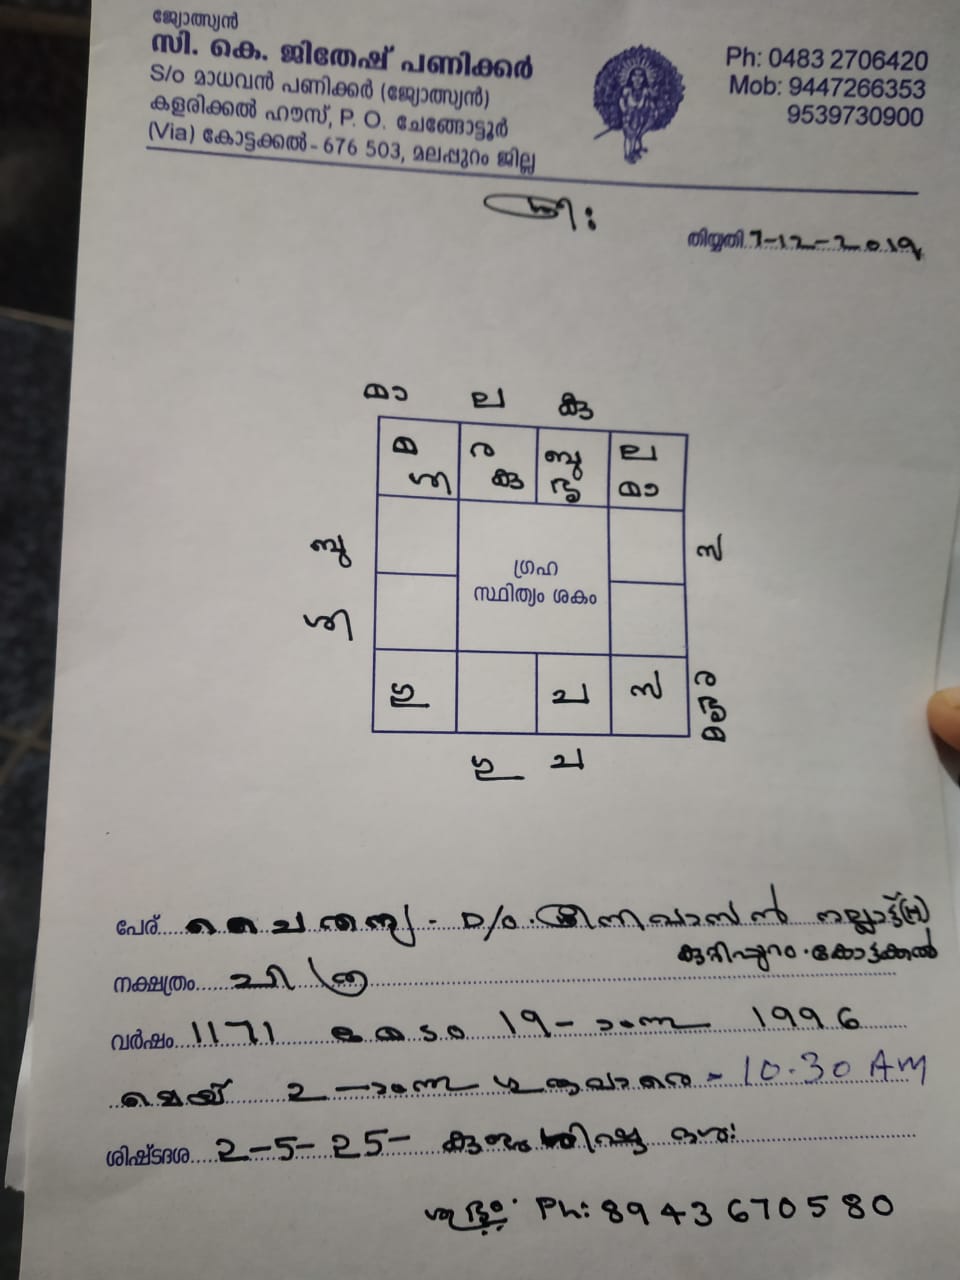 ജ്യോത്സ്യൻ
സി. കെ. ജിതേഷ് പണിക്കർ
S/o മാധവൻ പണിക്കർ (ജ്യോത്സ്യൻ)
കളരിക്കൽ ഹൗസ്, P. O. ചേങ്ങോട്ടൂർ
(Via) കോട്ടക്കൽ - 676 503, മലപ്പുറം ജില്ല
Ph: 0483 2706420
Mob: 9447266353
9539730900
ശ്രീ:
തിയ്യതി 7-12-2019
മാ ല കു
മ ര ബു ല
ശി കു ശു മാ
ബു സ
ഗ്രഹ
സ്ഥിത്യം ശകം
ശി
ഗു ച സ
ര
ശു
മ
ഗു ച
പേര് ചൈതന്യ - D/o. ശ്രീനിവാസൻ
കുറിപ്പുറം. കോട്ടക്കൽ
നക്ഷത്രം ചിത്ര
വർഷം 1171 മേടം 19-ാംനു 1996
മെയ് 2-ാംനു - 10.30 AM
ശിഷ്ടദശ 2-5-25-
ശുഭം Ph: 8943670580